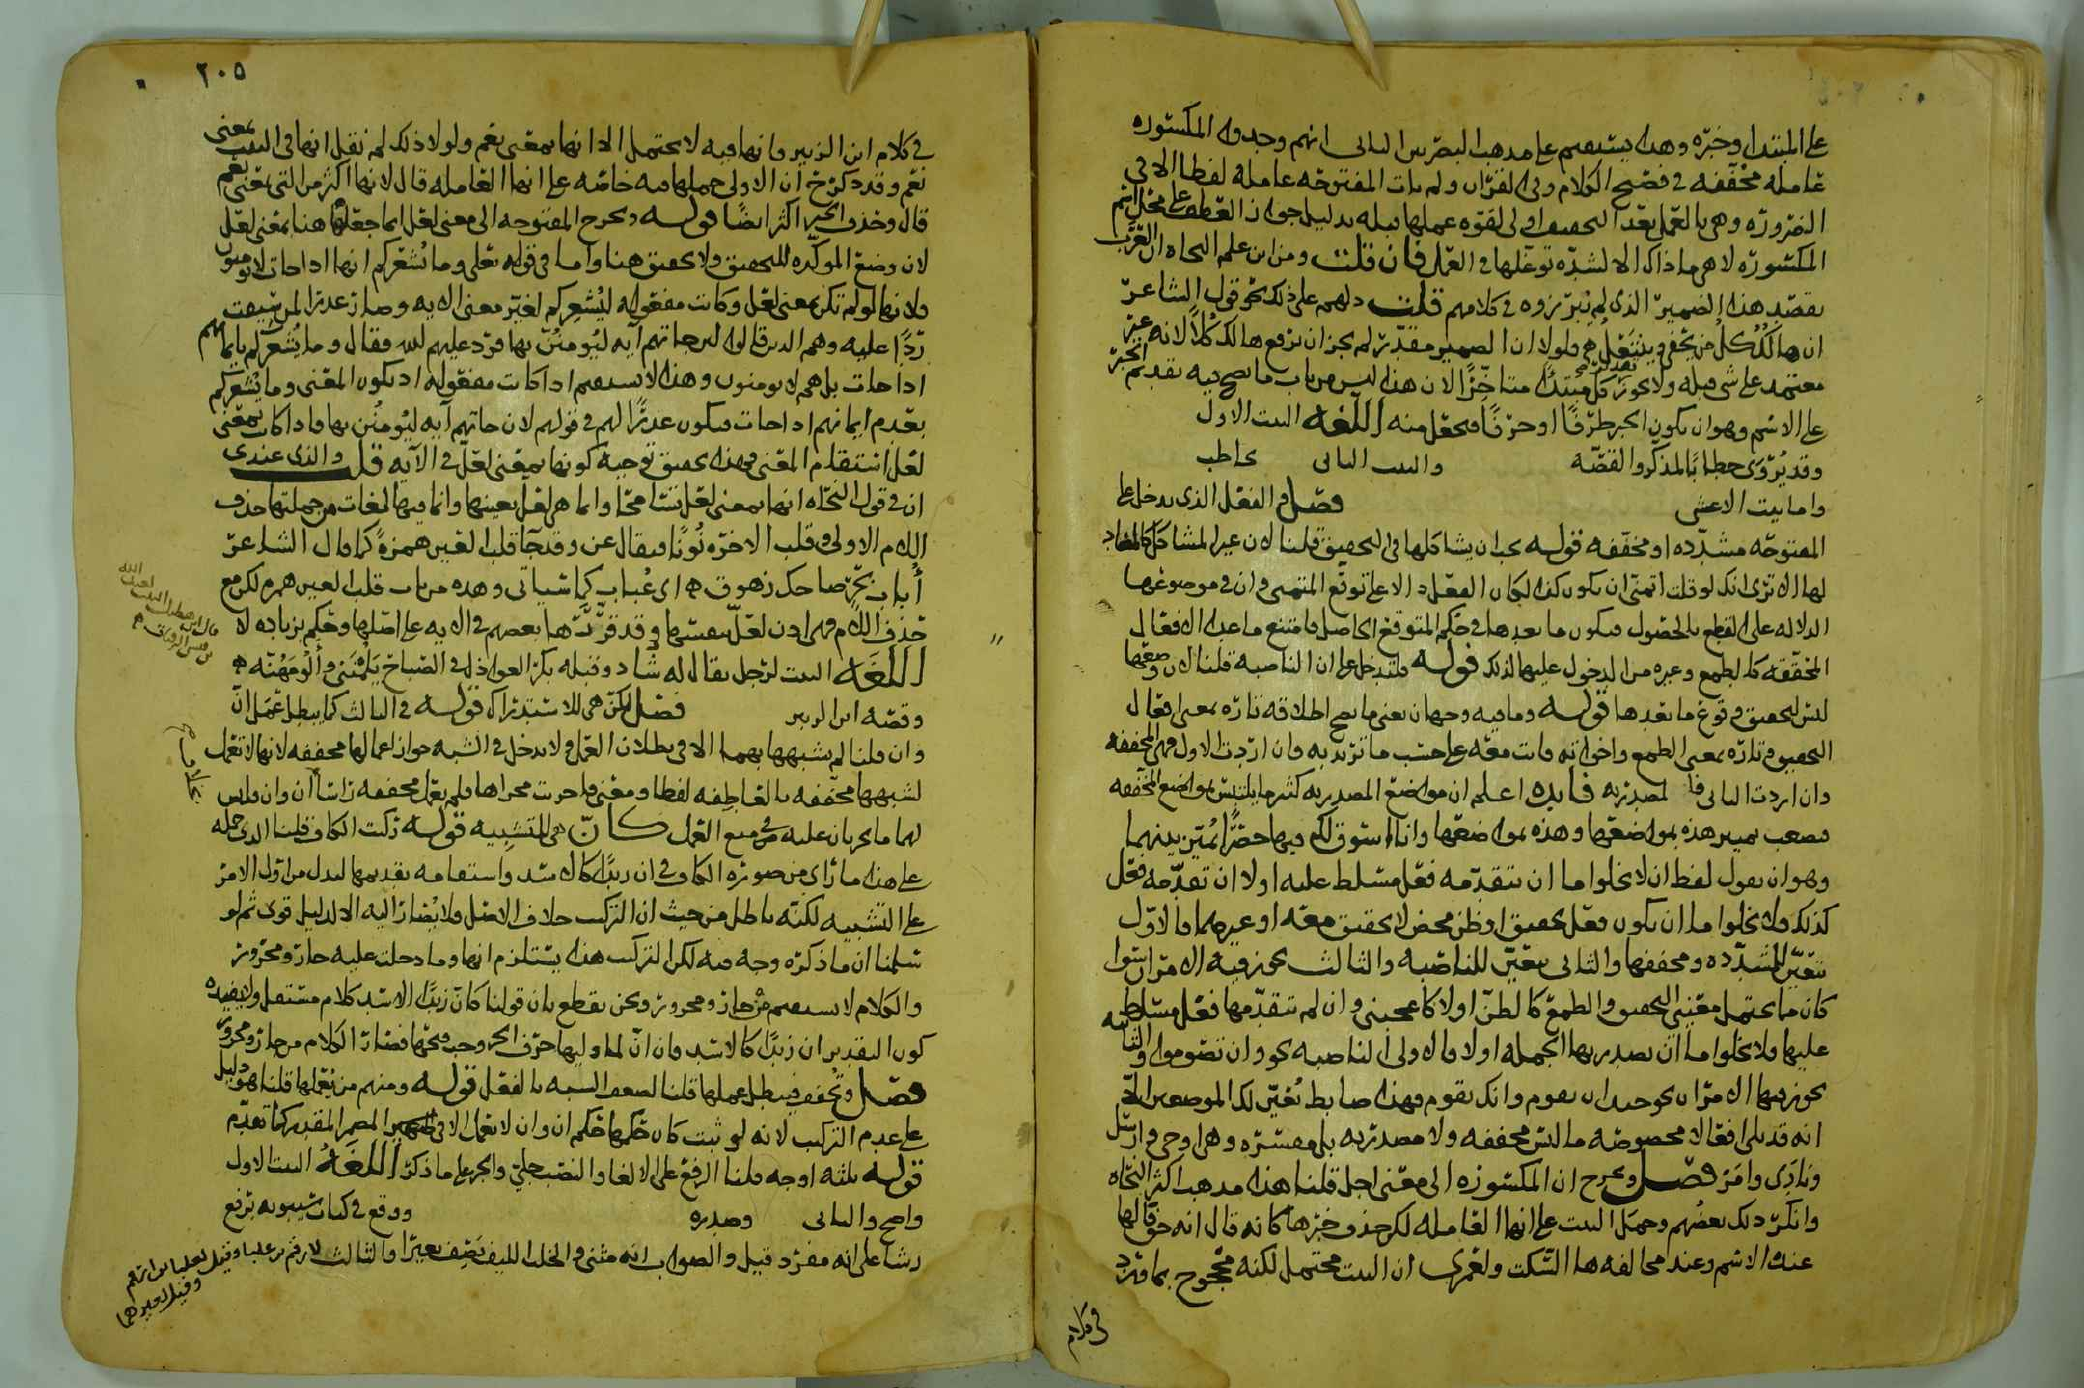 على المبتدا وخبره وهذا يستقيم على مذهب البصريين الثاني انهم وجدوا المكسورة
عاملة مخففة في فصيح الكلام وفي القران ولم يات المفتوحة عاملة لفظا الا في
الضرورة وهي بالعمل بعد التخفيف اولى لقوة عملها قبله بدليل جواز العطف على محل اسم
المكسورة لا هي وما ذاك الا لشدة توغلها في العمل فان قلت ومن اين علم النحاة ان العرب
تقصد هذا الضمير الذي لم يبرزوه في كلامهم قلت دلهم على ذلك نحو قول الشاعر
ان هالك كل من يحفى وينتعل فلولا ان الضمير مقدر لم يجز ان يرفع هالك كلا لانه غير
معتمد على شي قبله ولا يجوز كل مبتدا متاخرا لان هذا ليس من باب ما يصح فيه تقديم الخبر
على الاسم وهو ان يكون الخبر ظرفا او حرفا فيجعل منه اللغة البيت الاول
وقد يروى خطابا لمذكر والقصة والبيت الثاني يخاطب
واما بيت الاعشى فصل والفعل الذي يدخل على
المفتوحة مشددة او مخففة قوله يجب ان يشاكلها في التحقيق قلنا لان غير المشاكل كالمضاد
لها الا ترى انك لو قلت اتمنى ان يكون كذا لكان الفعل دالا على توقع المتمنى وان في موضوعها
الدلالة على القطع بالحصول فيكون ما بعدها في حكم المتوقع الحاصل فامتنع ما عدا الافعال
المحققة كالطمع وغيره من الدخول عليها لذلك قوله فلتدخل على ان الناصبة قلنا لان وضعها
ليس لتحقيق وقوع ما بعدها قوله وما فيه وجهان يعني ما يصح اطلاقه تارة بمعنى افعال
التحقيق وتارة بمعنى الطمع واخواته فانت معه على حسب ما تريد به فان اردت الاول فهي المخففة
وان اردت الثاني فالمصدرية فايده اعلم ان مواضع المصدرية كثيرا ما يلتبس بمواضع المخففة
فصعب تمييز هذه بمواضعها وهذه بمواضعها وانا اسوق لكم فيها حصرا يميز بينهما
وهو ان نقول لفظ ان لا يخلوا اما ان يتقدمه فعل مسلط عليه او لا ان تقدمه فعل
كذلك فلا يخلوا اما ان يكون فعل تحقيق او ظن محض لا تحقيق معه او غيرهما فالاول
يتعين للمشددة ومخففها والثاني يتعين للناصبة والثالث يجوز فيه الامران سوا
كان ما يحتمل معنيي التحقيق والطمع كالظن او لا كاعجبني وان لم يتقدمها فعل مسلط
عليها فلا يخلوا اما ان يصدر بها الجملة او لا فالاولى الناصبة نحو وان تصوموا والثانية
يجوز فيها الامران نحو جيد ان يقوم وانك تقوم فهذا ضابط يعين لك الموضعين الا
انه قد يلي افعالا مخصوصة ما ليس مخففة ولا مصدرية بل مفسرة وهي اوحي وارسل
ونادى وامر فصل ويخرج ان المكسورة الى معنى اجل قلنا هذا مذهب اكثر النحاة
وانكر ذلك بعضهم وحمل البيت على انها العاملة لكن حذف خبرها كانه قال انه حق قالها
عند الاسم وعند مخالفه ها السكت ولعمري ان البيت محتمل لكنه محجوج بما ورد
في كلام
٢٠٥
في كلام ابن الزبير وانها فيه لا يحتمل الا انها بمعنى نعم ولولا ذلك لم نقل انها في البيت بمعنى
نعم وقد ذكر ان الاولى حملها فيه خاصة على انها العاملة قال لانها اكثر من التي بمعنى نعم
قال وحذف الخبر اكثر ايضا قوله ويخرج المفتوحة الى معنى لعل انما جعلها هنا بمعنى لعل
لان وضع المؤكدة للتحقيق ولا تحقيق هنا واما في قوله تعلى وما يشعركم انها اذا جات لا يومنون
فلانها لو لم تكن بمعنى لعل وكانت مفعولة ليشعركم لغير معنى الاية وصار عذرا لمن سيقت
ردا عليه وهم الذين قالوا لئن جاتهم آية ليومنن بها فرد عليهم الله فقال وما يشعركم بايمانهم
اذا جات بل هم لا يومنون وهذا لا يستقيم اذا كانت مفعولة اذ يكون المعنى وما يشعركم
بعدم ايمانهم اذا جات فيكون عذرا لهم في قولهم لان جاتهم آية ليومنن بها فاذا كانت بمعنى
لعل استقام المعنى فهذا تحقيق توجيه كونها بمعنى لعل في الآية قلت والذي عندي
ان في قول النحاة انها بمعنى لعل تسامحا وانما هي لعل بعينها وانما فيها لغات من جملتها حذف
اللام الاولى وقلب الاخرة نونا فيقال عن وقد جا قلب العين همزة كما قال الشاعر
أباب بحر ضاحك زهوق اي عباب كما سياتي وهذه من باب قلب العين همزة لكن مع
حذف اللام فهي اذن لعل نفسها وقد قرت هما بعضهم في الاية على اصلها وحكم بزيادة لا
اللغة البيت لرجل يقال له شاد وقبله بكر العواذل في الصباح يلمنني وألومهنه
وقصة ابن الزبير فصل لكن هي للاستدراك قوله في الثالث كما يبطل عمل ان
وان قلنا لم يشبهها بهما الا في بطلان العمل ولا يدخل في الشبه جواز اعمالها مخففة لانها لا تعمل
لشبهها مخففة بالعاطفة لفظا ومعنى فاجريت مجراها فلم تعمل مخففة راسا أن وان فليس
لهما ما يجريان عليه في منع العمل كان هي للتشبيه قوله ركبت الكاف قلنا الذي حمله
على هذا ما راى من صورة الكاف في ان زيدا كالاسد واستقامة تقديمها ليدل من اول الامر
على التشبيه لكنه باطل من حيث ان التركيب خلاف الاصل ولا يصار اليه الا لدليل قوي ثم لو
سلمنا ان ما ذكره وجه فيه لكن التركيب هذا يستلزم انها وما دخلت عليه جار ومجرور
والكلام لا يستقيم من جار ومجرور ونحن نقطع بان قولنا كان زيدا الاسد كلام مستقل ولا يفيده
كون التقدير ان زيدا كالاسد فان ان لما وليها حرف الجر وجب فتحها فصار الكلام من جار ومجرور
فصل وتخفف فيبطل عملها قلنا لضعف الشبه بالفعل قوله ومنهم من يعملها قلنا هو دليل
على عدم التركيب لانه لو ثبت كان حكمها حكم ان وان لا تعمل الا في المضمر المقدر كما تقدم
قوله ثلثة اوجه قلنا الرفع على الالغا والنصب جلي والجر على ما ذكر اللغة البيت الاول
واضح والثاني وصدره ووقع في كتاب سيبويه برفع
رشا على انه مفرد قيل والصواب انه مثنى والخلب الليف يصف بعيرا والثالث لارقم بن علبا وقيل لعلبا بن ارقم
وقيل لغيرهما